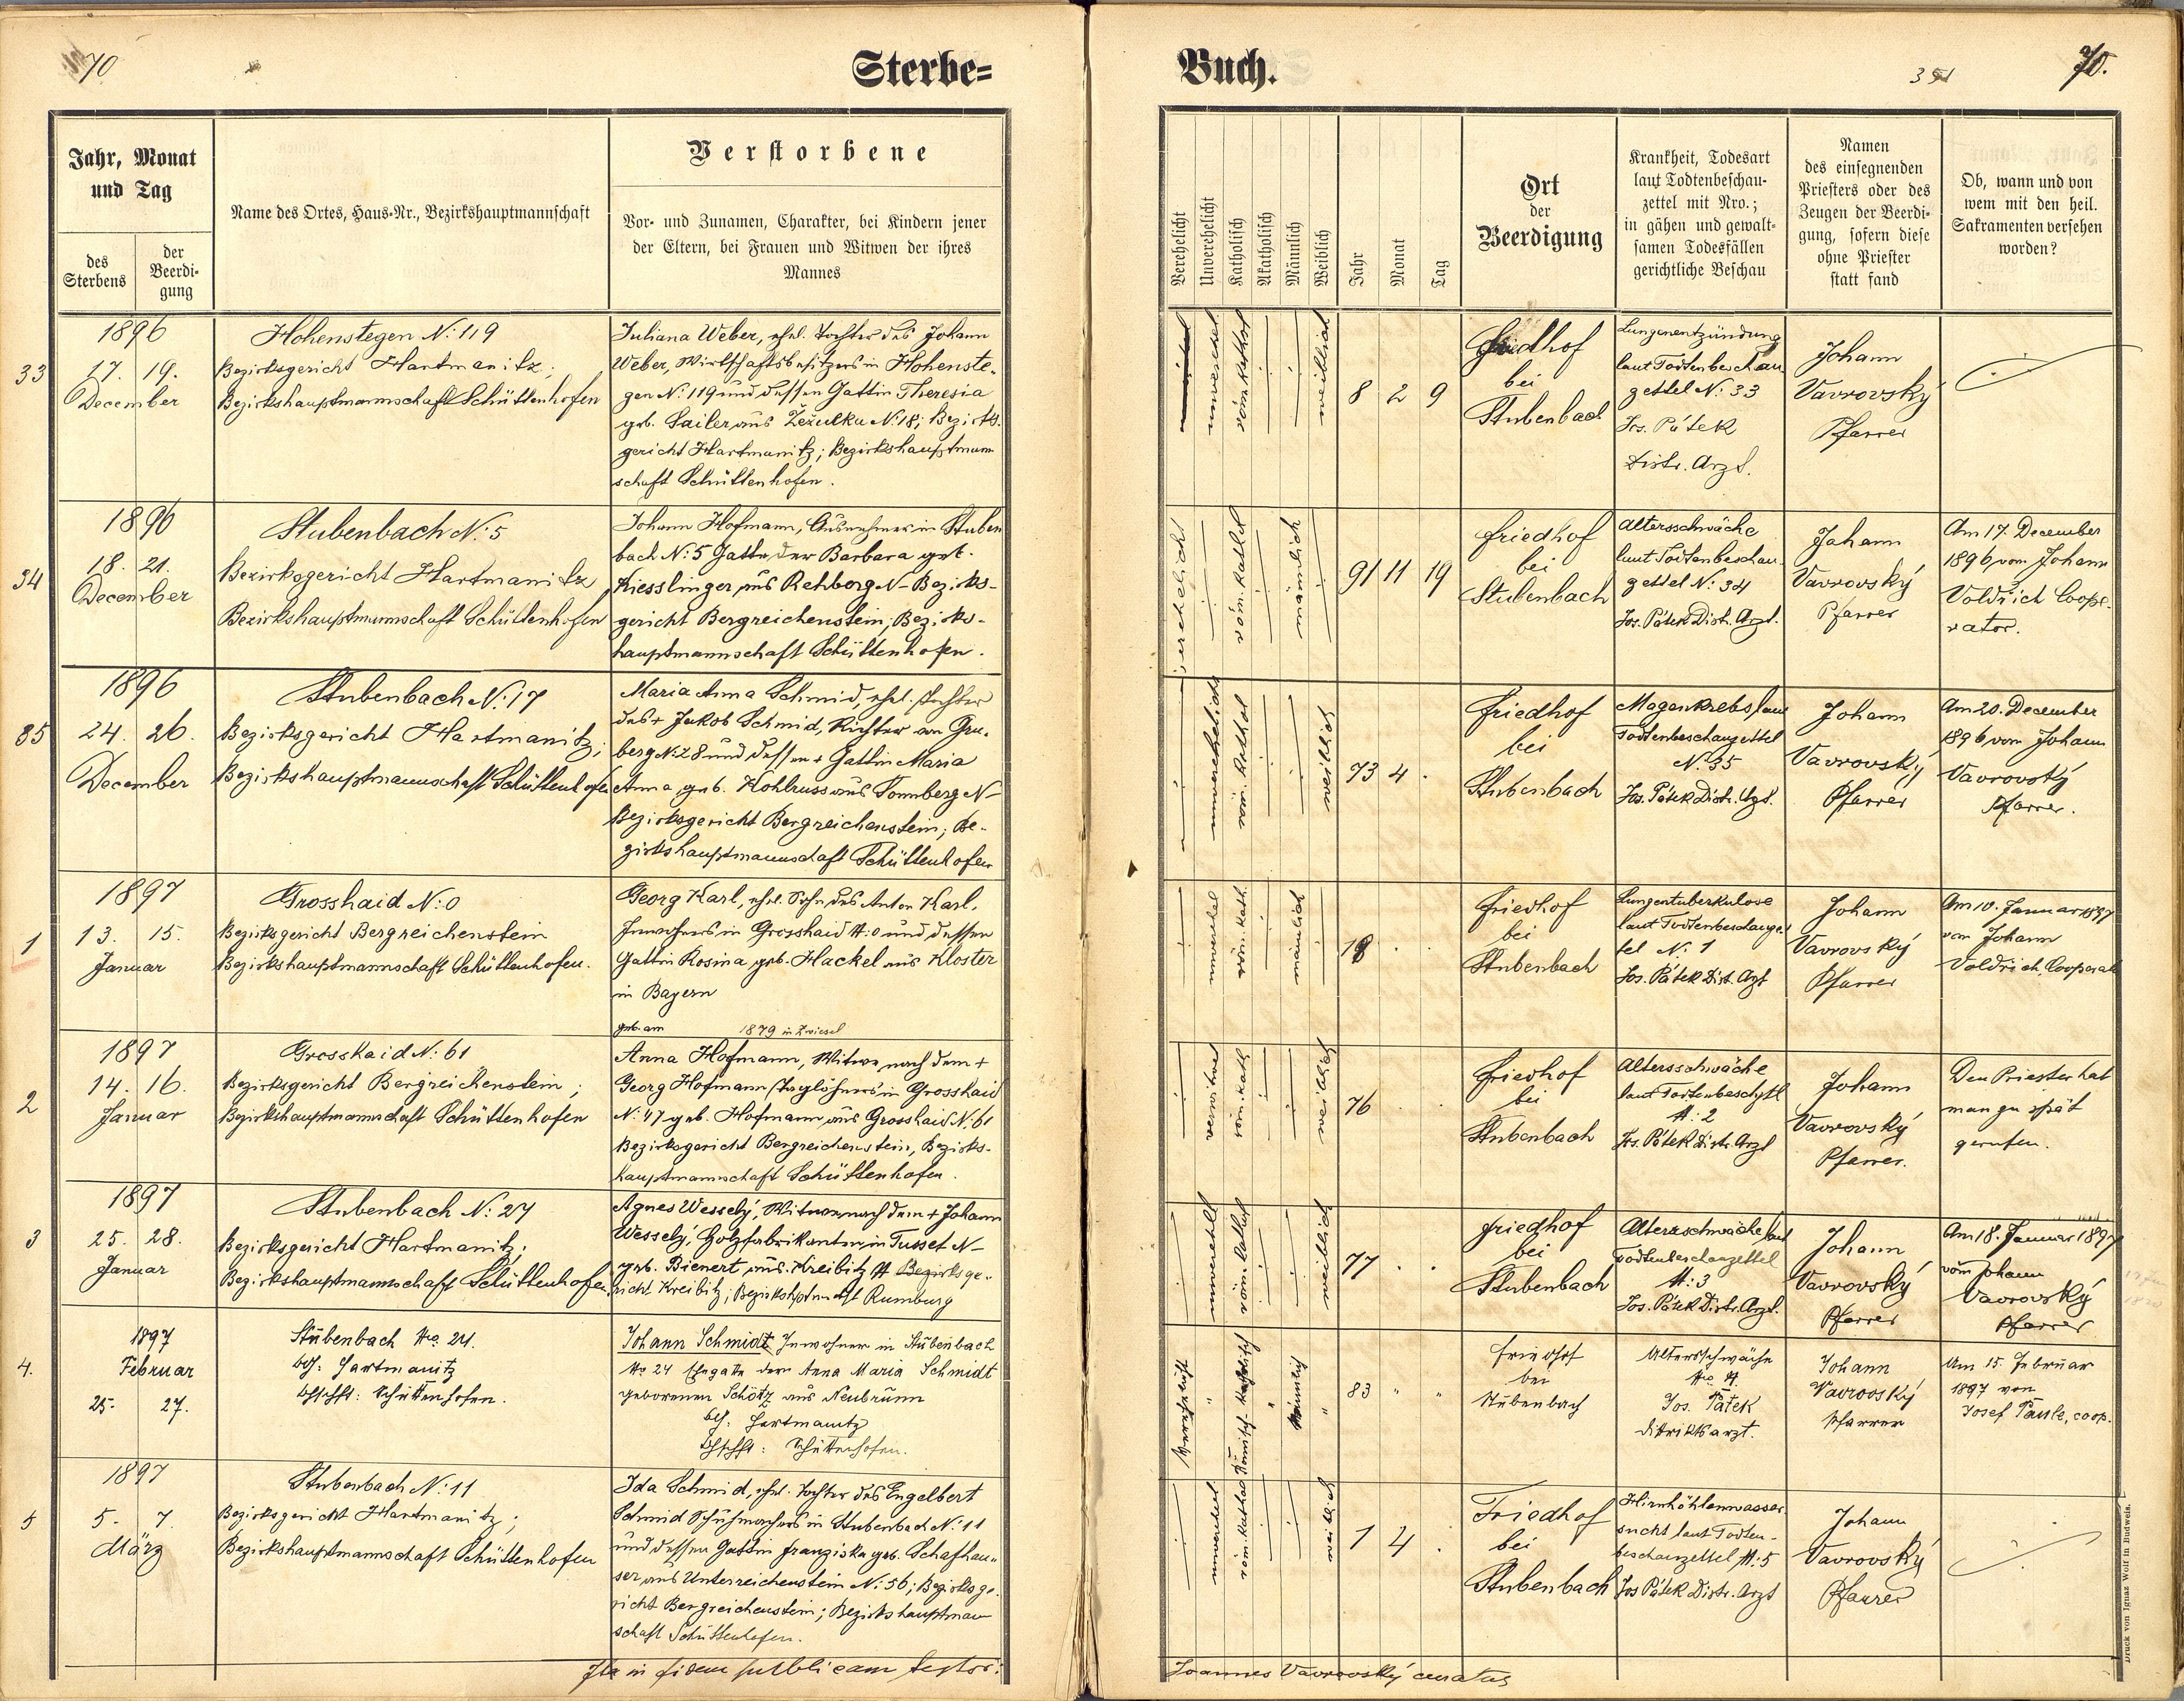 70
Sterbe-
Jahr, Monat
und Tag
des
Sterbens
der
Beerdi-
gung
Name des Ortes, Haus-Nr., Bezirkshauptmannschaft
Verstorbene
Vor- und Zunamen, Charakter, bei Kindern jener
der Eltern, bei Frauen und Witwen der ihres
Mannes
33
1896
17. 19.
December
Hohenstegen N: 119
Bezirksgericht Hartmanitz;
Bezirkshauptmannschaft Schüttenhofen
Juliana Weber, ehel. Tochter des Johann
Weber, Wirtschaftsbesitzers in Hohenste-
gen N: 119 und dessen Gattin Theresia
geb. Sailer aus Žežulka N: 18; Bezirks-
gericht Hartmanitz; Bezirkshauptmann
schaft Schüttenhofen.
34
1896
18. 21.
December
Stubenbach N: 5
Bezirksgericht Hartmanitz
Bezirkshauptmannschaft Schüttenhofen
Johann Hofmann, Ausnehmer in Stuben
bach N: 5 Gatte der Barbara geb.
Kiesslinger aus Rehberg N- Bezirks-
gericht Bergreichenstein; Bezirks-
hauptmannschaft Schüttenhofen.
35
1896
24. 26.
December
Stubenbach N: 17
Bezirksgericht Hartmanitz;
Bezirkshauptmannschaft Schüttenhofen
Maria Anna Schmid, ehel. Tochter
des + Jakob Schmid, Richter von Gru-
berg N: 28 und dessen + Gattin Maria
Anna, geb. Kohlruss aus Sonnberg N-
Bezirksgericht Bergreichenstein; Be-
zirkshauptmannschaft Schüttenhofen
1
1897
13. 15.
Januar
Grosshaid N: 0
Bezirksgericht Bergreichenstein
Bezirkshauptmannschaft Schüttenhofen.
Georg Karl, ehel. Sohn des Anton Karl,
Inwohners in Grosshaid N: 0 und dessen
Gattin Rosina geb. Hackel aus Kloster
in Bayern
geb. am 1879 in Zwiesel
2
1897
14. 16.
Januar
Grosshaid N: 61
Bezirksgericht Bergreichenstein;
Bezirkshauptmannschaft Schüttenhofen
Anna Hofmann, Witwe nach dem +
Georg Hofmann Taglöhners in Grosshaid
N: 47 geb. Hofmann aus Grosshaid N. 61
Bezirksgericht Bergreichenstein, Bezirks-
hauptmannschaft Schüttenhofen.
3
1897
25. 28.
Januar
Stubenbach N: 27
Bezirksgericht Hartmanitz;
Bezirkshauptmannschaft Schüttenhofen.
Agnes Wessely, Witwe nach dem + Johann
Wessely, Holzfabrikanten in Tusset N-
geb. Bienert aus Kreibitz N Bezirksge-
richt Kreibitz; Bezirkshptmschft Rumburg
4.
1897
Februar
25. 27.
Stubenbach No. 24.
Hartmanitz
Schüttenhofen.
Johann Schmidt Inwohner in Stubenbach
No 24 Ehegatte der Anna Maria Schmidt
geborenen Schötz aus Neubrunn
Hartmanitz
Schüttenhofen.
5
1897
5. 7.
März
Stubenbach N: 11
Bezirksgericht Hartmanitz;
Bezirkshauptmannschaft Schüttenhofen
Ida Schmid, ehel. Tochter des Engelbert
Schmid Schuhmachers in Stubenbach N: 11
und dessen Gattin Franziska geb. Schafhau-
ser aus Unterreichenstein N: 56; Bezirksge-
richt Bergreichenstein; Bezirkshauptman
schaft Schüttenhofen.
Ita in fidem publicam testor:
Buch.
70.
Verehelicht
Unverehelicht
Katholisch
Akatholisch
Männlich
Weiblich
Jahr
Monat
Tag
Ort
der
Beerdigung
Krankheit, Todesart
laut Todtenbeschau-
zettel mit Nro.;
in gähen und gewalt-
samen Todesfällen
gerichtliche Beschau
Namen
des einsegnenden
Priesters oder des
Zeugen der Beerdi-
gung, sofern diese
ohne Priester
statt fand
Ob, wann und von
wem mit den heil.
Sakramenten versehen
worden?
weiblich
8 2 9
Friedhof
bei
Stubenbach
Lungenentzündung
laut Todtenbeschau
zettel N: 33
Jos. Pátek
Distr. Arzt.
Johann
Vavrovský
Pfarrer
verehelicht
röm. kathol
männlich
91 11 19
Friedhof
bei
Stubenbach
Altersschwäche
laut Todtenbeschau-
zettel N: 34
Jos. Pátek Distr. Arzt.
Johann
Vavrovský
Pfarrer
Am 17. December
1896 vom Johann
Voldřich Coope-
rator.
unverehelicht
röm. kathol
weiblich
73 4 .
Friedhof
bei
Stubenbach
Magenkrebs laut
Todtenbeschauzettel
N: 35
Jos. Pátek Distr. Arzt.
Johann
Vavrovský
Pfarrer
Am 20. December
1896 vom Johann
Vavrovský
Pfarrer.
unverehel
röm. kath.
männlich
18 . .
Friedhof
bei
Stubenbach
Lungentuberkulose
laut Todtenbeschauzet
tel N. 1
Jos. Pátek Dist. Arzt
Johann
Vavrovský
Pfarrer
Am 10. Januar 1897
von Johann
Voldřich, Cooperat
verwitwet
röm. kath
weiblich
76 . .
Friedhof
bei
Stubenbach
Altersschwäche
N: 2
Jos. Pátek Distr. Arzt
Johann
Vavrovský
Pfarrer.
Den Priester hat
man zu spät
gerufen.
röm. kathol
weiblich
77 . .
Friedhof
bei
Stubenbach
Altersschwäche laut
Todtenbeschauzettel
N: 3
Jos. Pátek Distr. Arzt.
Johann
Vavrovský
Pfarrer
Am 18. Januar 1897
vom Johann
Vavrovský
Pfarrer
Verehelicht
"
Römisch-katholisch
"
Männlich
"
83 " "
Friedhof
bei
Stubenbach
Altersschwäche
No 4.
Jos. Pátek
Distriktsarzt.
Johann
Vavrovský
Pfarrer
Am 15. Februar
1897 von
Josef Pausle, coop.
unverehel
röm. kathol
weiblich
1 4 .
Friedhof
bei
Stubenbach
Hirnhöhlenwasser
sucht laut Todten-
beschauzettel N: 5
Jos Pátek Distr. Arzt
Johann
Vavrovský
Pfarrer
Joannes Vavrovský curatus
Druck von Ignaz Wolf in Budweis.